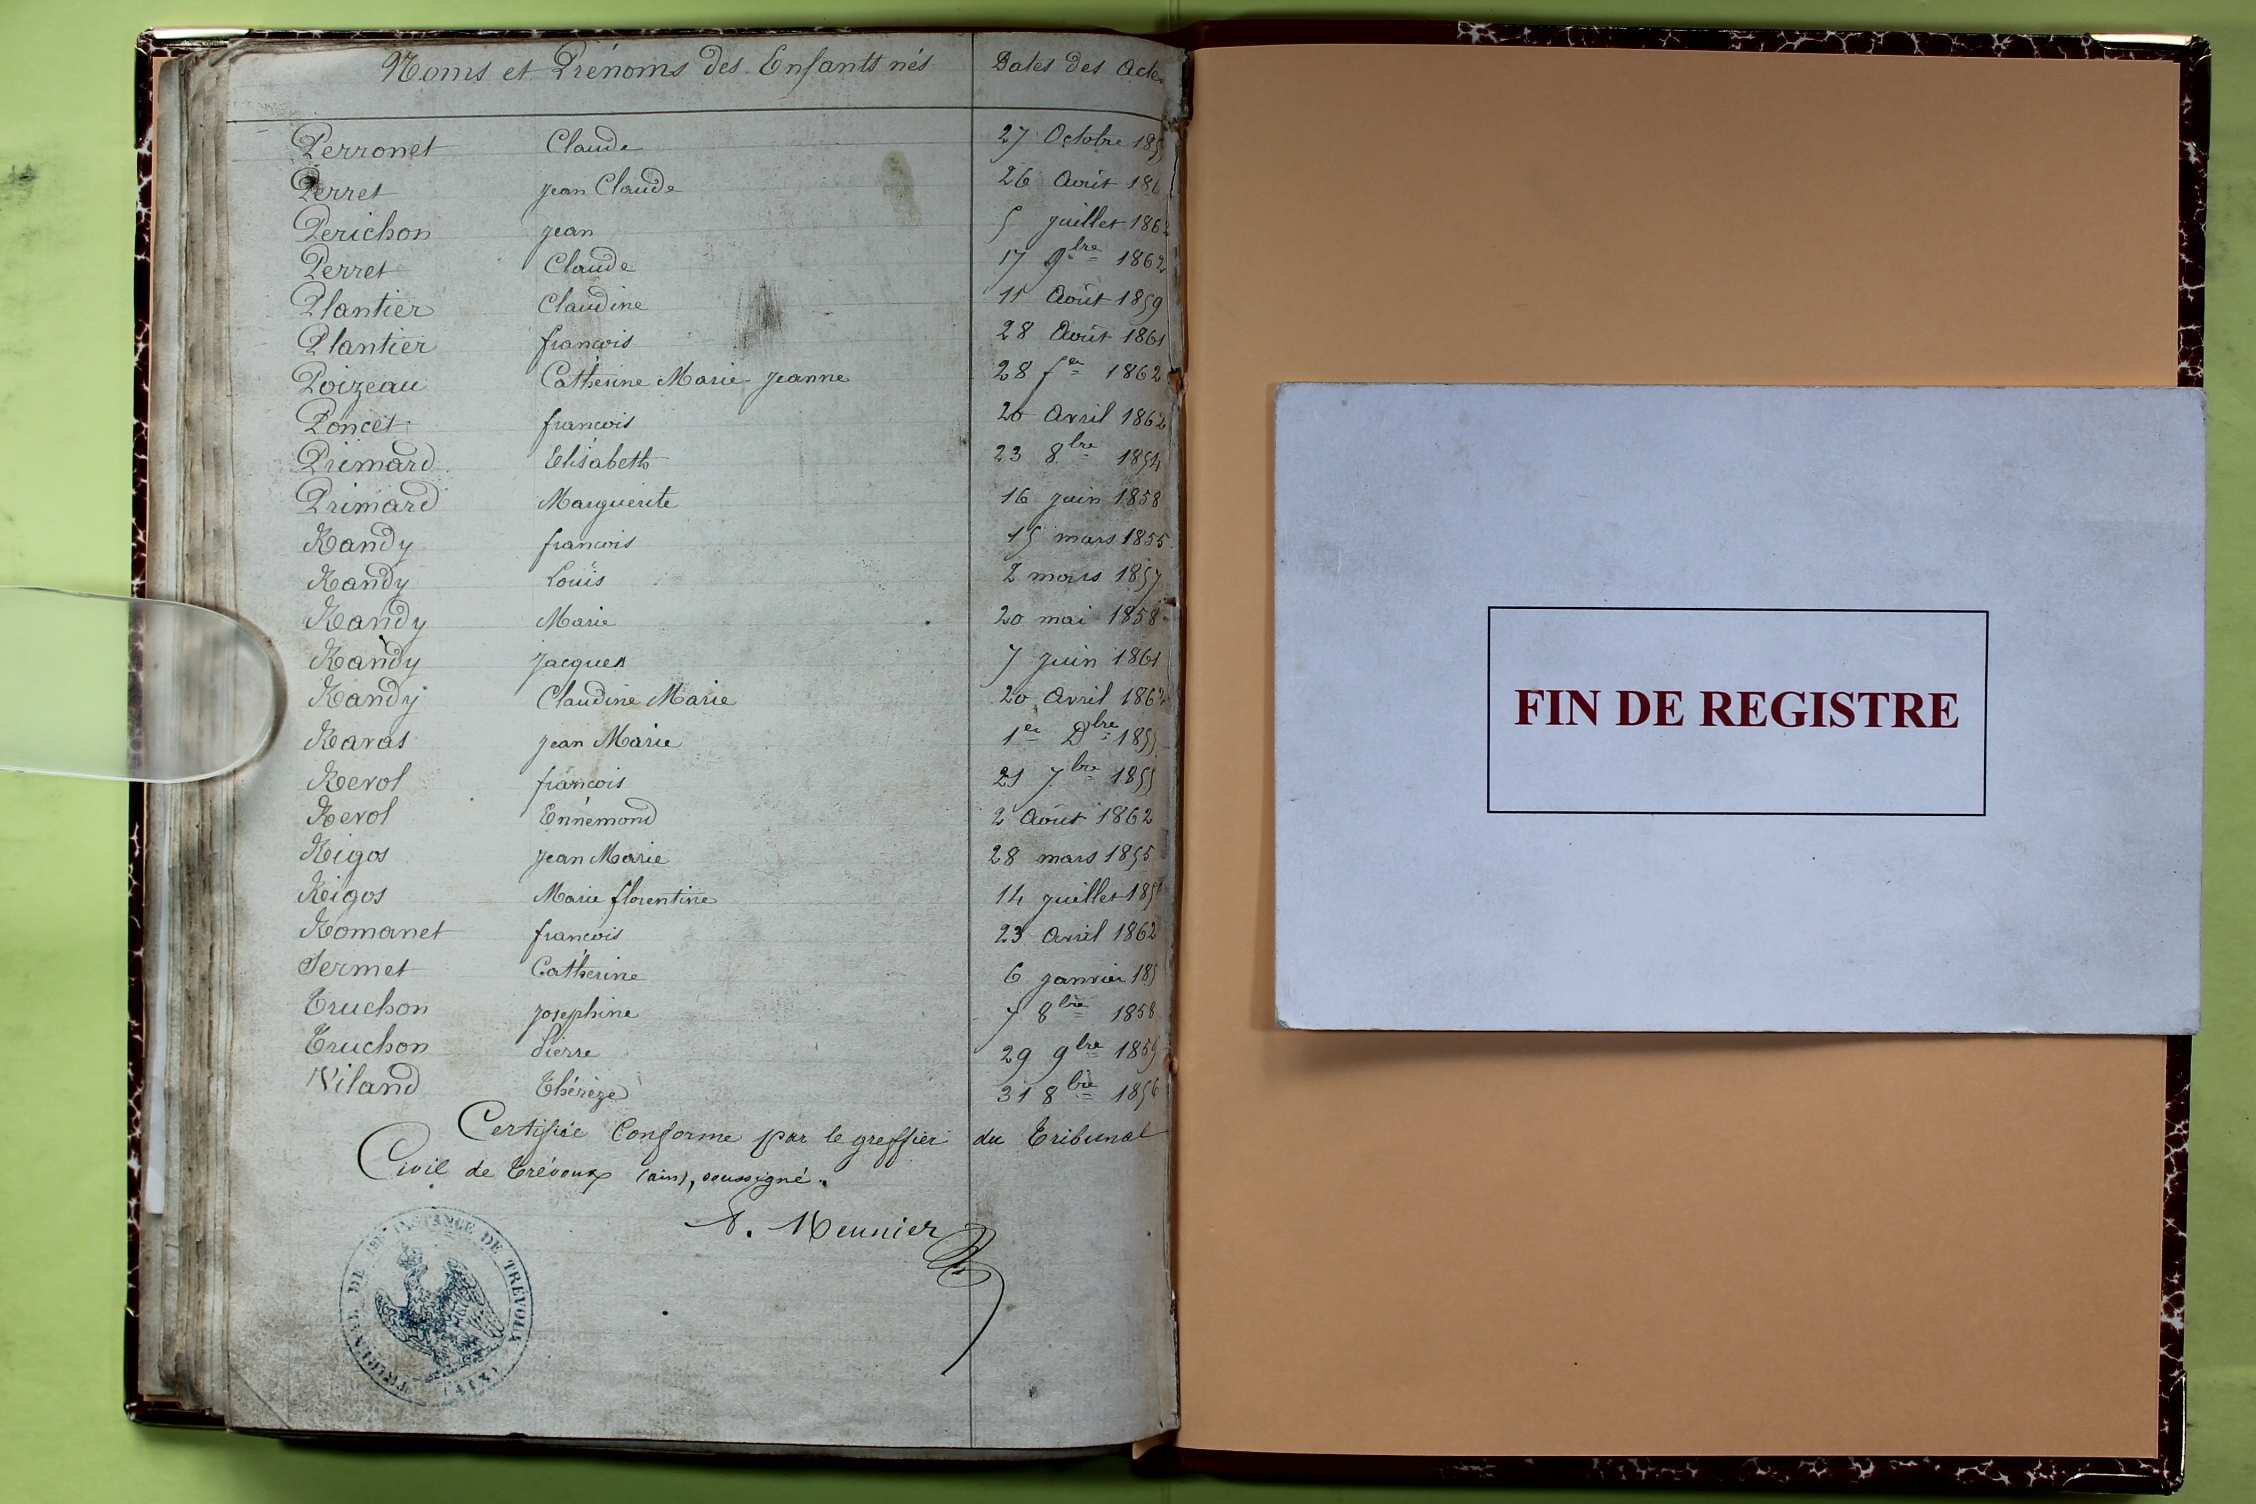 Noms et Prénoms des Enfants nés Dates des Actes
Perronet Claude 27 Octobre 185
Perret Jean Claude 26 Août 186
Perichon Jean 5 Juillet 1862
Perret Claude 17 9bre 1862
Plantier Claudine 11 Août 1859
Plantier francois 28 Août 1861
Poizeau Catherine Marie Jeanne 28 fer 1862
Poncet francois 20 Avril 1862
Primard Elisabeth 23 8bre 1854
Primard Marguerite 16 Juin 1858
Randy francois 15 mars 1855
Randy Louis 2 mars 1857
Randy Marie 20 mai 1858
Randy Jacques 7 Juin 1861
Randy Claudine Marie 20 Avril 1862
Ravat Jean Marie 1er Dbre 1855
Revol francois 21 7bre 1855
Revol Ennémond 2 Août 1862
Rigos Jean Marie 28 mars 1855
Rigos Marie florentine 14 Juillet 185
Romanet francois 23 Avril 1862
Sermet Catherine 6 Janvier 185
Truchon Josephine 7 8bre 1858
Truchon Pierre 29 9bre 1859
Viland Thérèze 31 8bre 1856
Certifiée Conforme par le greffier du Tribunal
Civil de Trévoux (ain), soussigné.
Meunier
TRIBUNAL DE 1ERE INSTANCE DE TREVOUX (AIN)
FIN DE REGISTRE